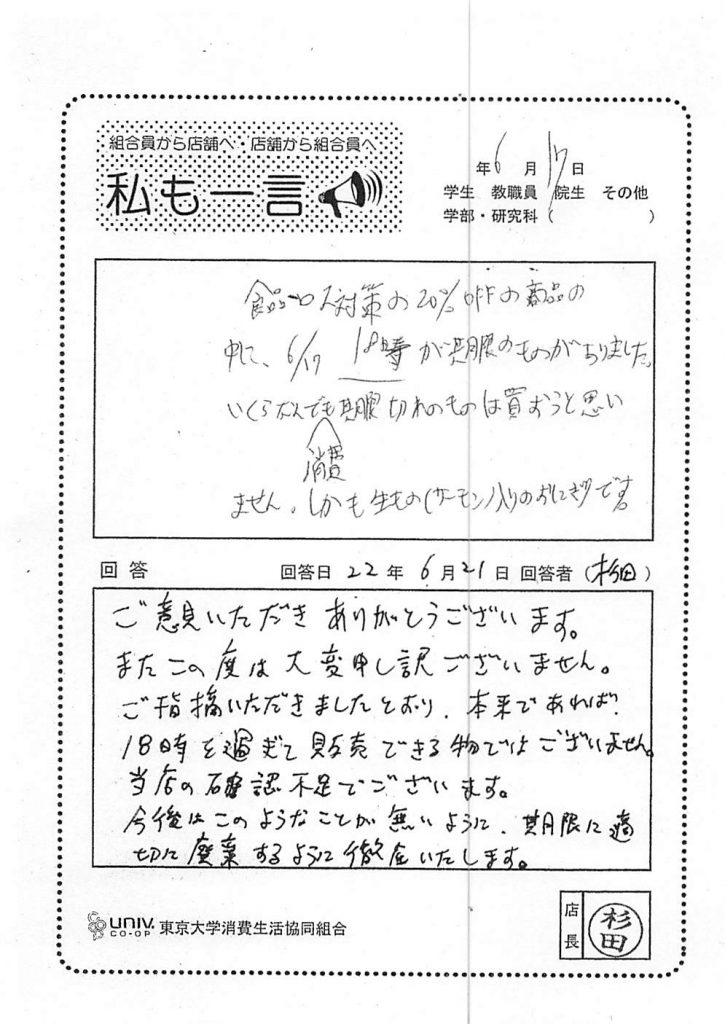 組合員から店舗へ・店舗から組合員へ
私も一言
年 6 月 17 日
学生 教職員 院生 その他
学部・研究科( )
食品ロス対策の20%OFFの商品の
中に、6/17 18時が期限のものがありました。
いくらなんでも期限切れのものは買おうと思い
消費
ません。しかも生もの(サーモン)入りのおにぎりです
回答 回答日 22 年 6 月 21 日 回答者(杉田)
ご意見いただきありがとうございます。
またこの度は大変申し訳ございません。
ご指摘いただきましたとおり、本来であれば
18時を過ぎて販売できる物ではございません。
当店の確認不足でございます。
今後はこのようなことが無いように、期限に適
切に廃棄するように徹底いたします。
UNIV. CO-OP 東京大学消費生活協同組合
店長 杉田